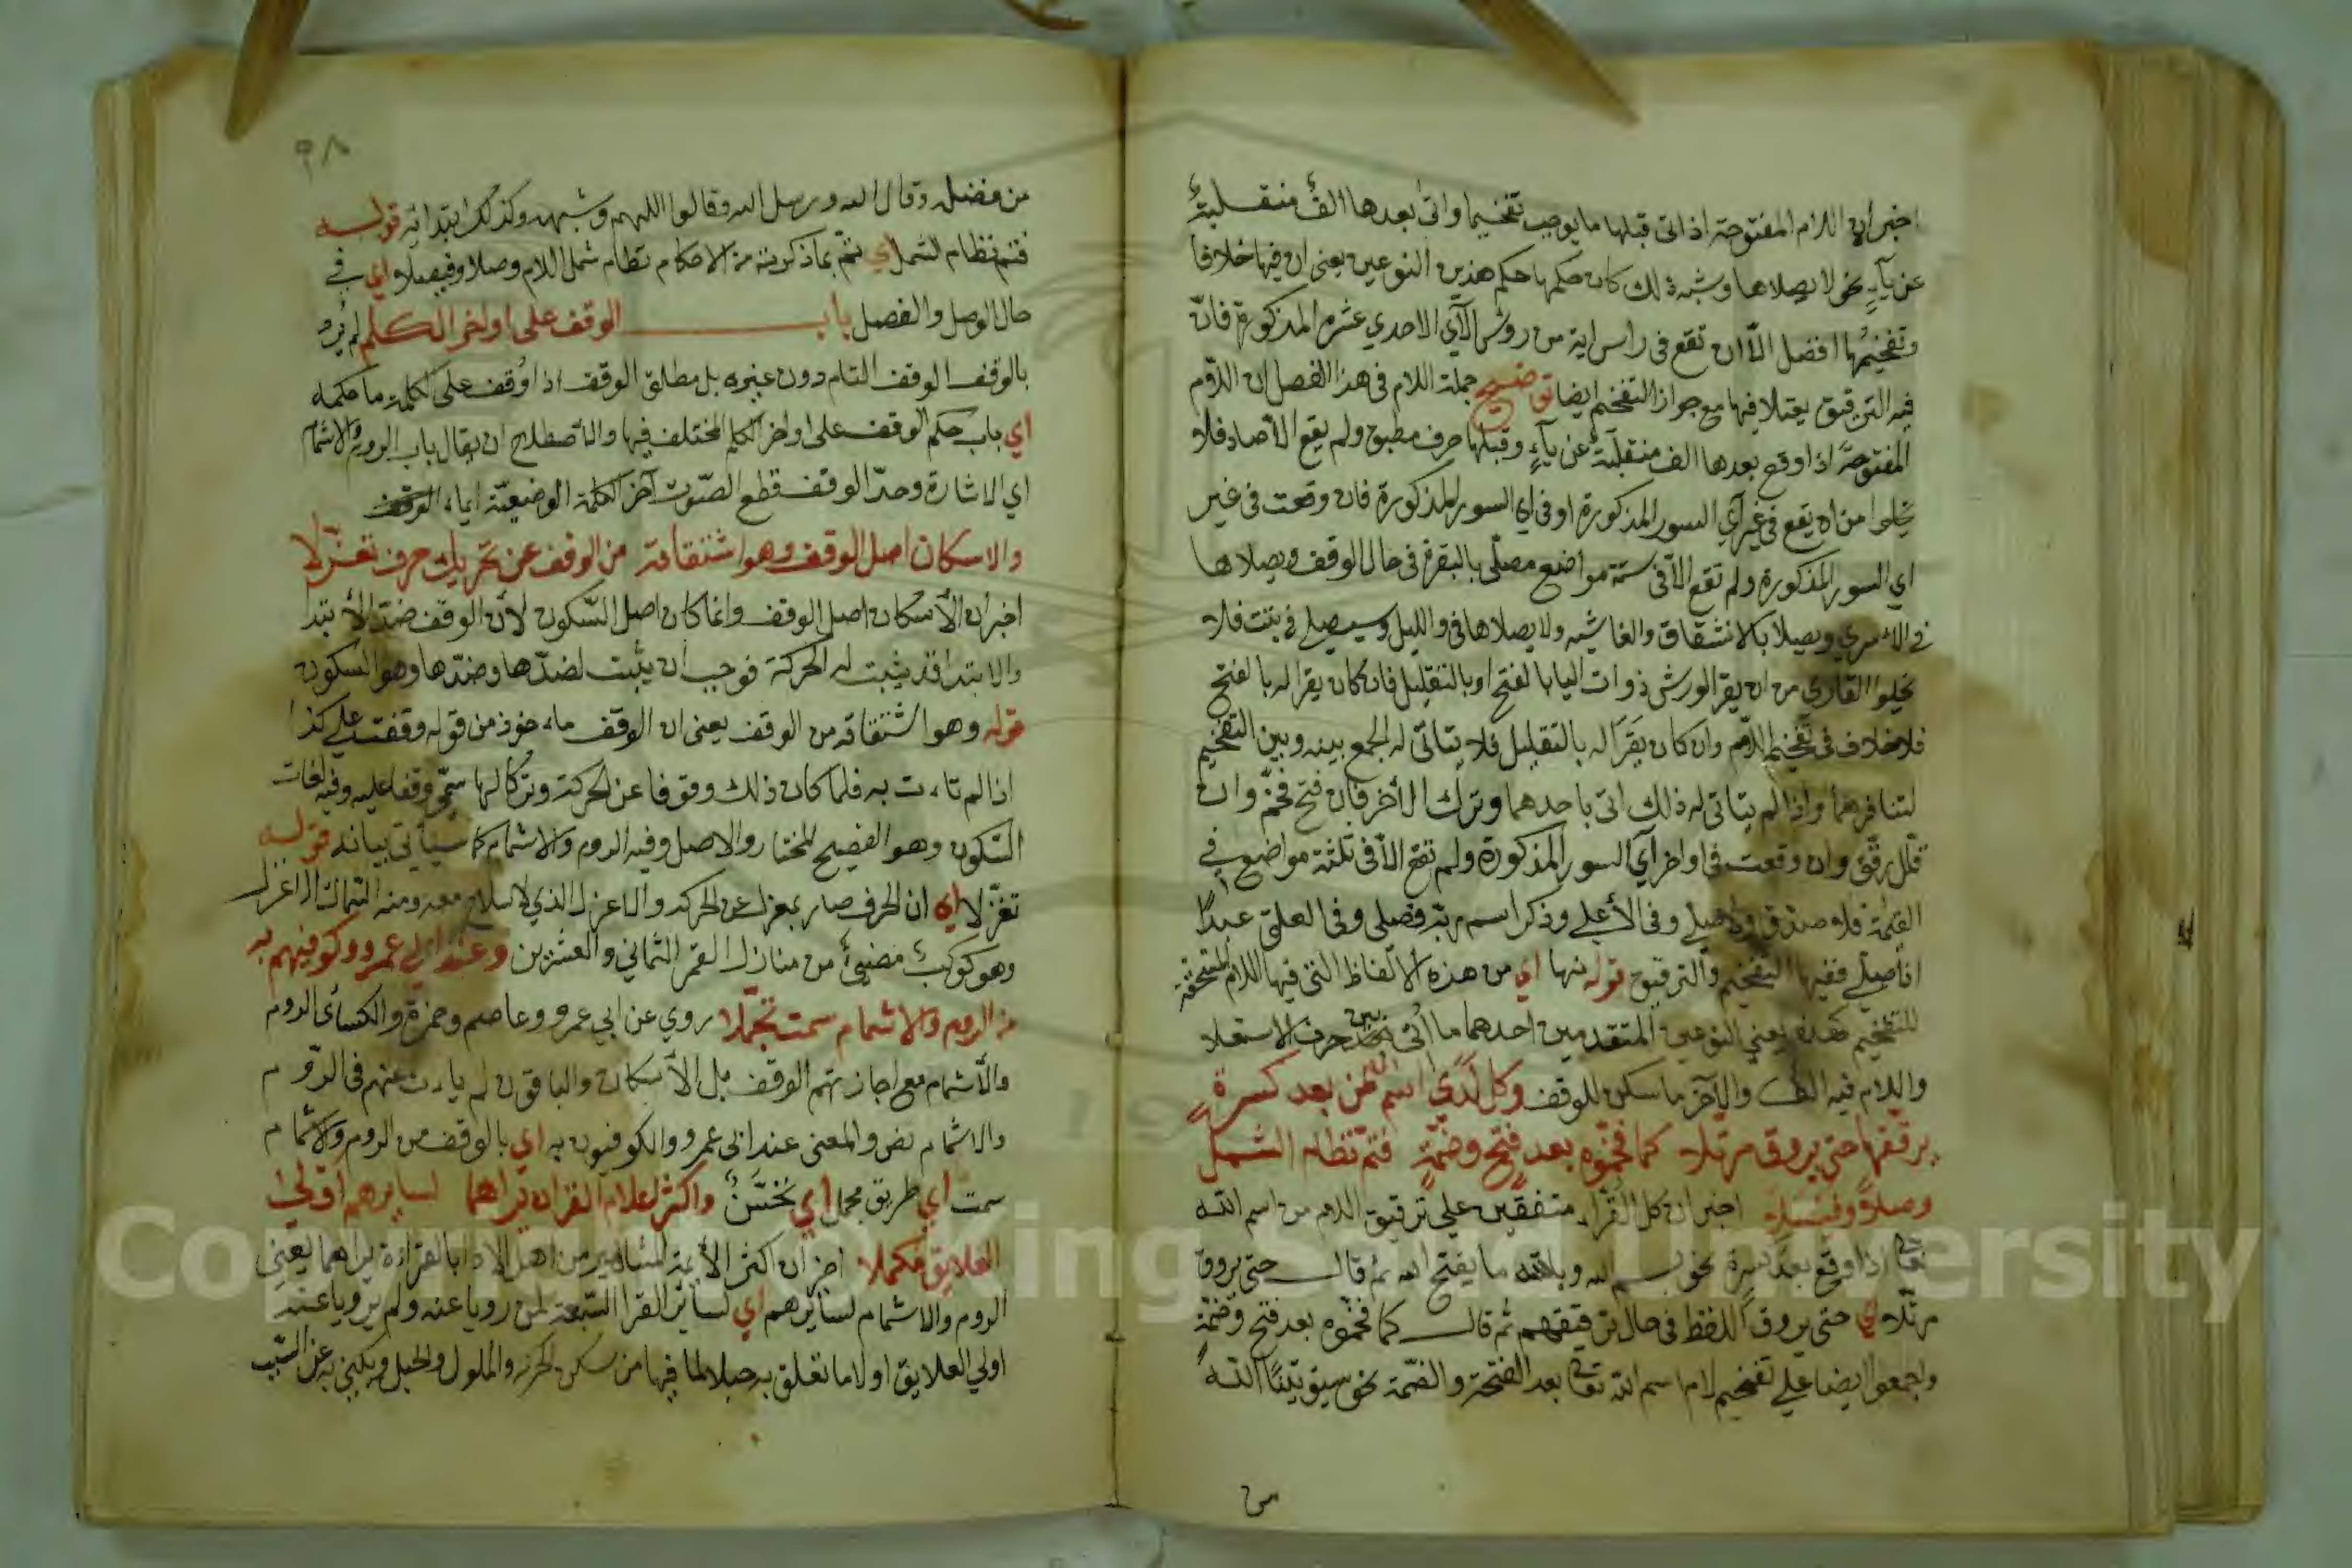 اخبر ان اللام المفتوحة اذا اتى قبلها ما يوجب تفخيما واتى بعدها الف منقلبة
عن ياء نحو لا يصلاها وشبه ذلك كان حكمها حكم هذين النوعين يعنى ان فيها خلافا
وتفخيمها افضل الا ان تقع فى راس اية من روس الآي الاحدي عشرة المذكورة فان
فيه الترقيق يعتلا فيها مع جواز التفخيم ايضا توضيح جملة اللام فى هذا الفصل ان اللام
المفتوحة اذا وقع بعدها الف منقلبة عن ياء وقبلها حرف مطبق ولم يقع الا صاد فلا
يخلوا من ان يقع فى غير آي السور المذكورة او فى اي السور المذكورة فان وقعت فى غير
اي السور المذكورة ولم تقع الا فى ستة مواضع مصلى بالبقرة فى حال الوقف ويصلاها
فى الاسري ويصلا بالانشقاق والغاشيه ولا يصلاها فى والليل وسيصلى فى تبت فلا
يخلوا القارى من ان يقرا لورش ذوات اليا بالفتح او بالتقليل فان كان يقرا له بالفتح
فلا خلاف فى تفخيم اللام وان كان يقرا له بالتقليل فلا يتاتى له الجمع بينه وبين التفخيم
لتنافرهما واذا لم يتاتى له ذلك اتى باحدهما وترك الأخر فان فتح فخم وان
قلل رقق وان وقعت فى اواخر آي السور المذكورة ولم تقع الا فى ثلثة مواضع في
القيمة فلا صدق ولا صلى وفى الأعلى وذكر اسم ربه فصلى وفى العلق عبدا
اذا صلى ففيها التفخيم والترقيق قوله نها اي من هذه الالفاظ التى فيها اللام المستحقة
للتفخيم كهذه يعني النوعين المتقدمين احدهما ما اتى بين حرف الاستعلا
واللام فيه الف والآخر ما سكن للوقف وكل لدى اسم الله من بعد كسرة
يرققها حتى يروق مرتلا كما فخموه بعد فتح وضمة فتم نظام الشمل
وصلا وفيصلا اخبر ان كل القراء متفقين على ترقيق اللام من اسم الله
تعالى اذا وقع بعد كسرة نحو بسم الله وبالله ما يفتح الله ثم قال حتى يروق
مرتلا اي حتى يروق اللفظ فى حال ترقيقهم ثم قال كما فخموه بعد فتح وضمة
واجمعوا ايضا على تفخيم لام اسم الله تعالى بعد الفتحة والضمة نحو سيؤتينا الله
من
٩٨
من فضله وقال الله ورسل الله وقالوا اللهم وشبهه وكذلك ابتدائه قوله
فتم نظام الشمل اي تم بما ذكرته من الاحكام نظام شمل اللام وصلا وفيصلا اي في
حال الوصل والفصل باب الوقف على اواخر الكلم لم يرد
بالوقف الوقف التام دون غيره بل مطلق الوقف اذا وقف على كلمة ما حكمه
اي باب حكم الوقف على اواخر الكلم المختلف فيها والاصطلاح ان يقال باب الروم والاشمام
اي الاشارة وحد الوقف قطع الصوت آخر الكلمة الوضعية
والاسكان اصل الوقف وهو اشتقاقه من الوقف عن تحريك حرف تعزلا
اخبر ان الأسكان اصل الوقف وانما كان اصل السكون لأن الوقف ضد الأبتدا
والابتدا قد يثبت له الحركة فوجب ان يثبت لضدها وضدها وهو السكون
قوله وهو اشتقاقه من الوقف يعنى ان الوقف ماءخوذ من قوله وقفت على كذا
اذا لم تاءت به فلما كان ذلك وقوفا عن الحركة وتركا لها سمي وقفا عليه وفيه لغات
السكون وهو الفصيح المختار والاصل وفيه الروم والاشمام كما سيأتى بيانه قوله
تعزلا اي ان الحرف صار بمعزل عن الحركه والاعزل الذي لا سلاح معه ومنه السماك الاعزل
وهو كوكب مضيئ من منازل القمر الثمانى والعشرين وعند ابي عمرو وكوفيهم به
من الروم والاشمام سمت تجملا روي عن ابي عمرو وعاصم وحمزة والكسائى الروم
والأشمام مع اجازتهم الوقف بل الأسكان والباقون لم يات عنهم فى الروم
والاشمام نص والمعنى عند ابى عمرو والكوفيون به اي بالوقف من الروم والاشمام
سمت اي طريق مجمل اي تحسن واكثر اعلام القران يراهما لسايرهم اولى
العلايق فكملا اخبر ان اكثر الأيمة المشاهير من اهل الادا بالقراءة يراهما يعنى
الروم والاشمام لسايرهم اي لساير القرا السبعة لمن رويا عنه ولم يرويا عنه
اولي العلايق اولا ما تعلق به حبلا لما فيها من سكن الحركه والملول والحبل ويكنى به عن السبب
Copyright © King Saud University